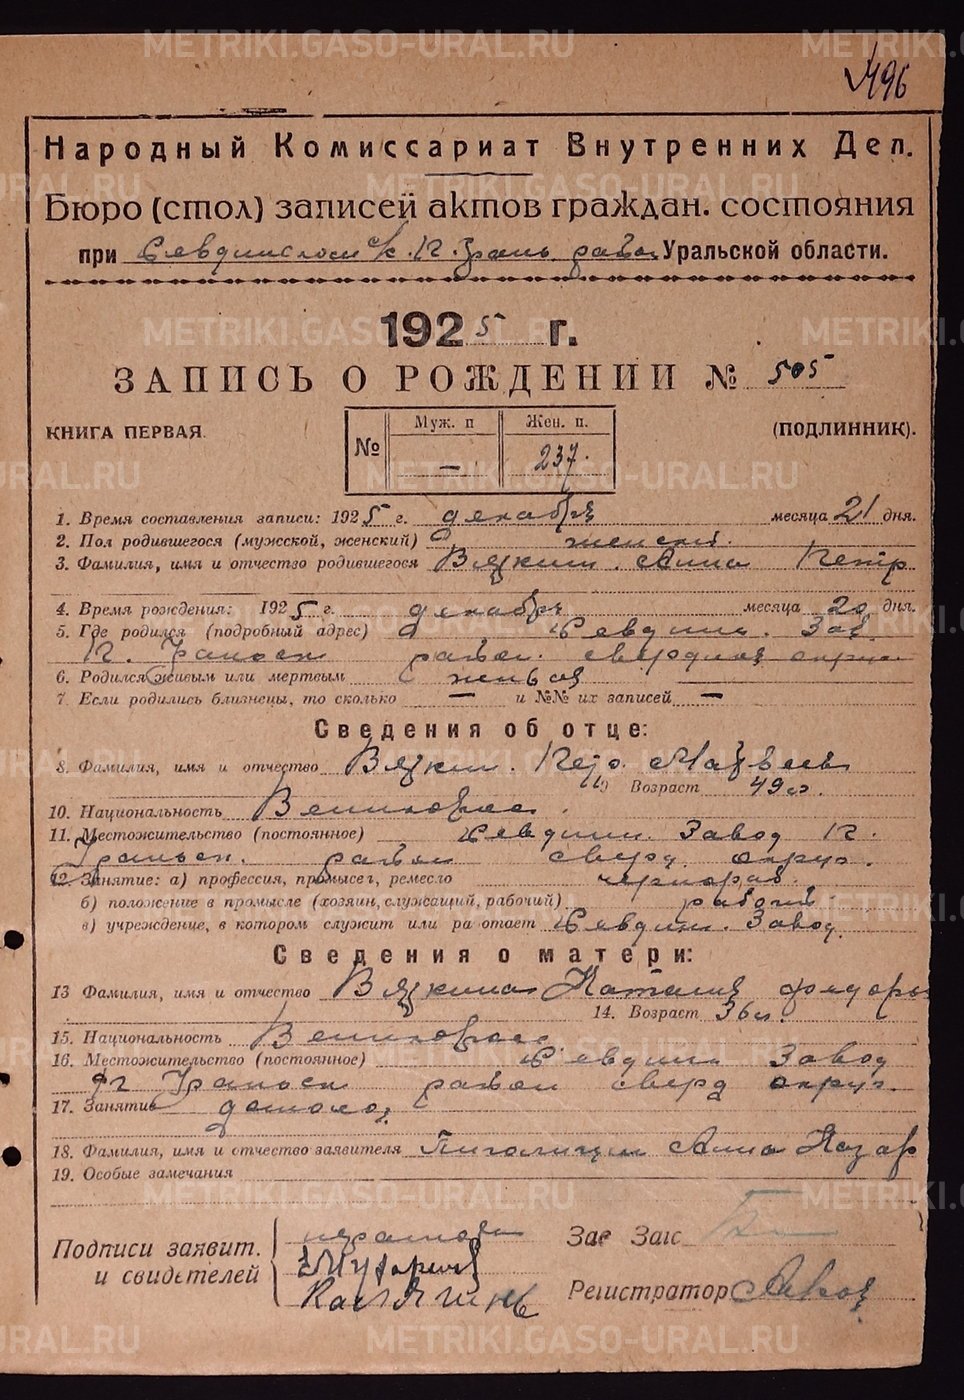 496
Народный Комиссариат Внутренних Дел.
Бюро (стол) записей актов граждан. состояния
при с/с. К. Урань. район Уральской области.
1925 г.
ЗАПИСЬ О РОЖДЕНИИ № 505
КНИГА ПЕРВАЯ. (ПОДЛИННИК).
№ Муж. п Жен. п.
— 237.
1. Время составления записи: 1925 г. декабря месяца 21 дня.
2. Пол родившегося (мужской, женский) женский.
3. Фамилия, имя и отчество родившегося Вяткин. Анна Петр
4. Время рождения: 1925 г. декабря месяца 20 дня.
5. Где родился (подробный адрес) Зав.
К. район. округ
6. Родился живым или мертвым живая
7. Если родились близнецы, то сколько — и №№ их записей —
Сведения об отце:
8. Фамилия, имя и отчество Вяткин. Петр. Матвеев
9) Возраст 49 л.
10. Национальность Великорос.
11. Местожительство (постоянное) Завод К.
район сверд. округ.
12 Занятие: а) профессия, промысел, ремесло чернораб.
б) положение в промысле (хозяин, служащий, рабочий) рабочий
в) учреждение, в котором служит или работает Завод.
Сведения о матери:
13 Фамилия, имя и отчество Вяткина Наталия Федоры
14. Возраст 36 л.
15. Национальность Великорос.
16. Местожительство (постоянное) Завод
район сверд округ.
17. Занятие домохоз
18. Фамилия, имя и отчество заявителя Анна Назар
19. Особые замечания
Подписи заявит. неграмотен Зав Загс
и свидетелей
Регистратор
METRIKI.GASO-URAL.RU